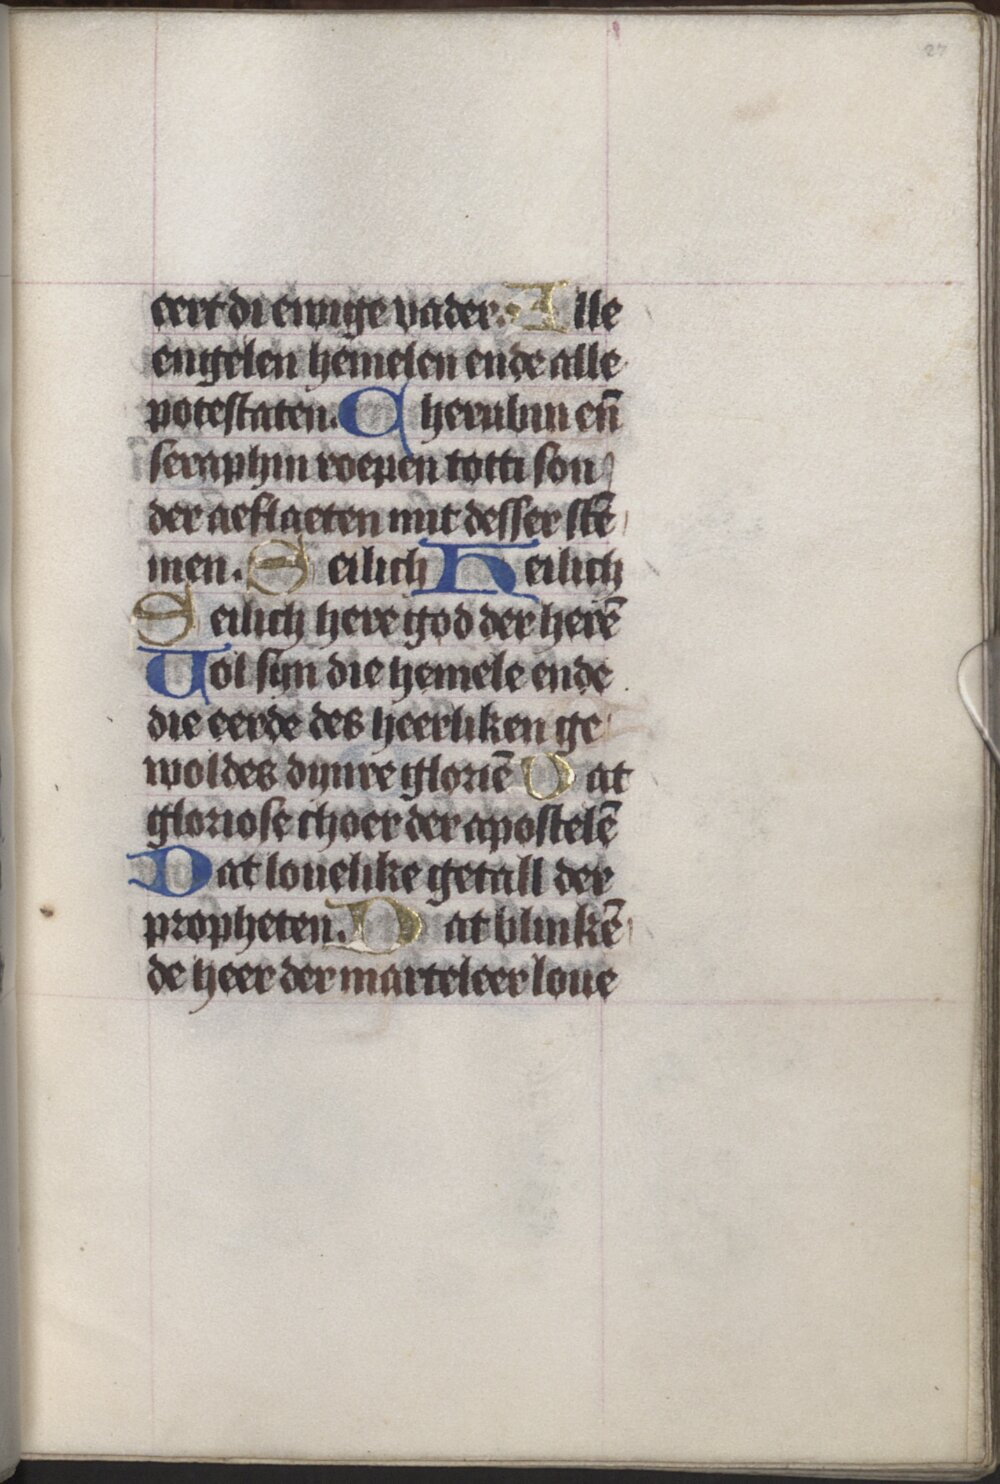 27
eert di ewige vader. Alle
engelen hemelen ende alle
potestaten. Cherubin en̄
seraphin roepen totti son
der aeflaeten mit desser stē
men. Heilich Heilich
Heilich here god der herē
Vol sijn die hemele ende
die eerde des heerliken ge
woldes dijnre gloriē Dat
gloriose choer der apostelē
Dat louelike getall der
propheten. Dat blinkē
de heer der marteleer loue